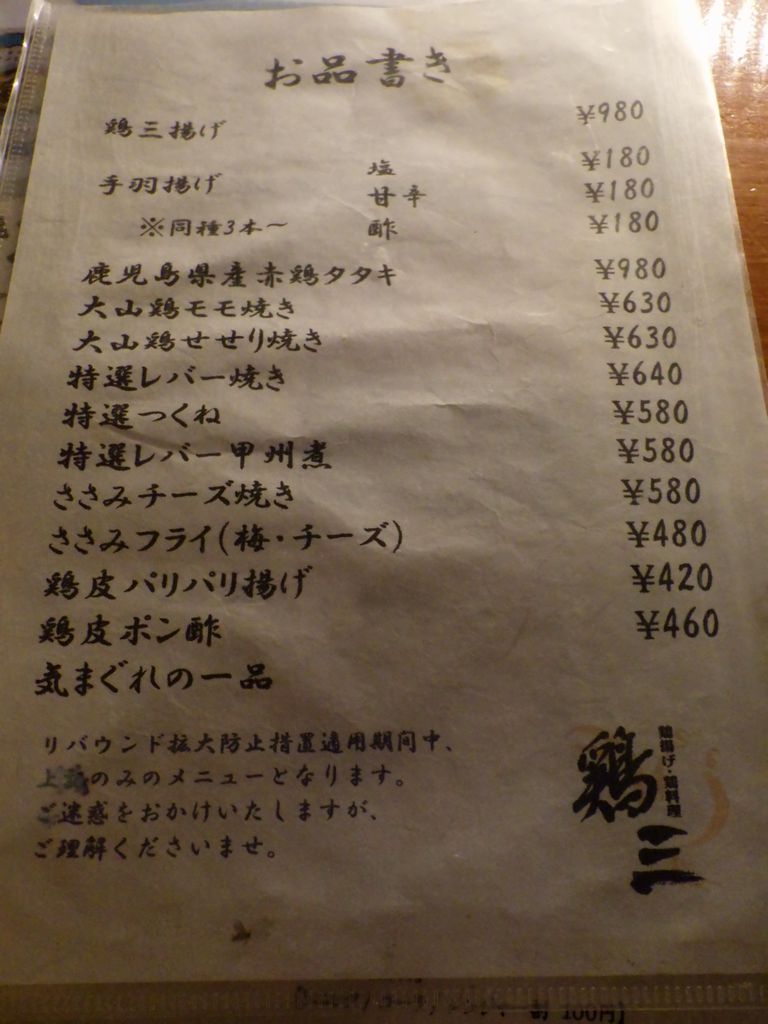 お品書き
鶏三揚げ ¥980
手羽揚げ 塩 ¥180
甘辛 ¥180
※同種3本～ 酢 ¥180
鹿児島県産赤鶏タタキ ¥980
大山鶏モモ焼き ¥630
大山鶏せせり焼き ¥630
特選レバー焼き ¥640
特選つくね ¥580
特選レバー甲州煮 ¥580
ささみチーズ焼き ¥580
ささみフライ(梅・チーズ) ¥480
鶏皮パリパリ揚げ ¥420
鶏皮ポン酢 ¥460
気まぐれの一品
リバウンド拡大防止措置適用期間中、
のみのメニューとなります。
ご迷惑をおかけいたしますが、
ご理解くださいませ。
鶏揚げ・鶏料理
鶏三